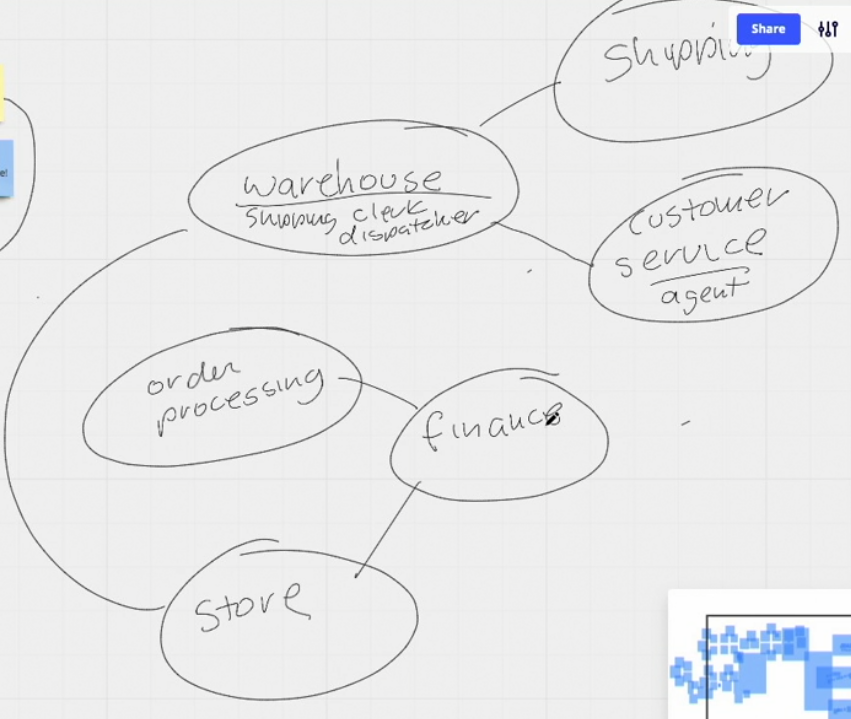 Share
Shipping
warehouse
shipping clerk
dispatcher
customer
service
agent
order
processing
finance
store
e!